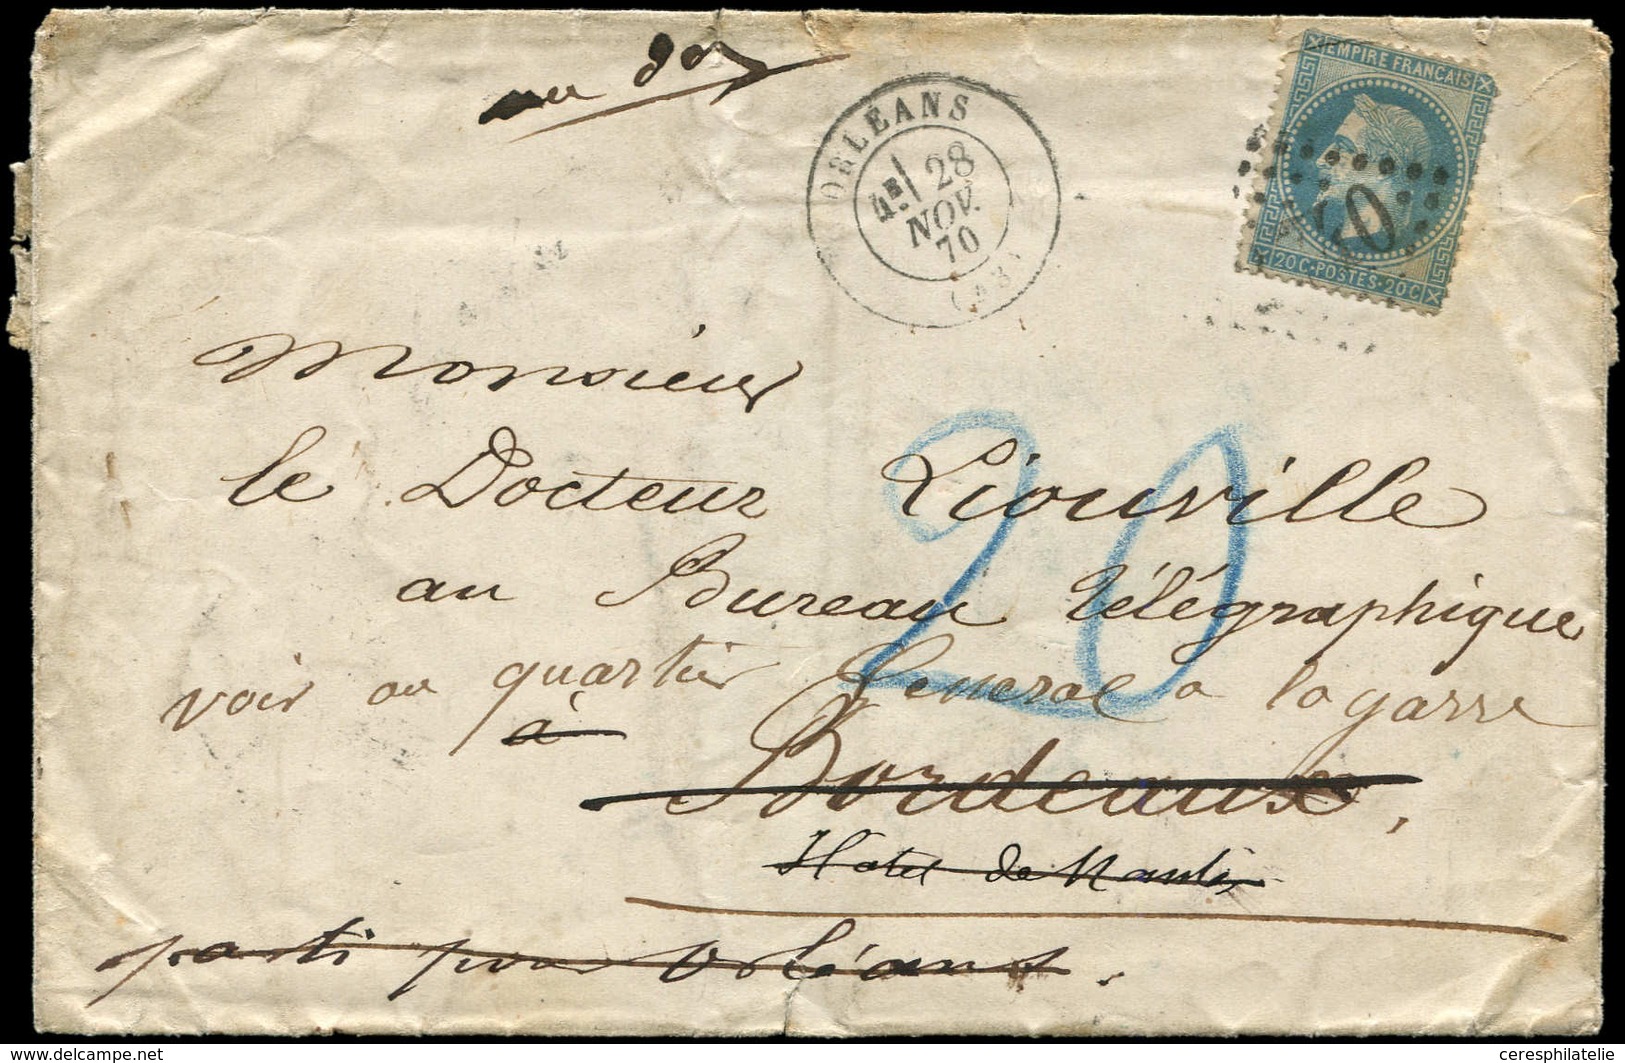 au dos
ORLÉANS
4E/ 28
NOV.
70
(43)
EMPIRE FRANÇAIS
20
20 C·POSTES·20 C
20
Monsieur
le Docteur Liouville
au Bureau télégraphique
voir au quartier General a la garre
à
Bordeaux,
Hotel de Nantes
parti pour Orléans.
delcampe.net
ceresphilatelie